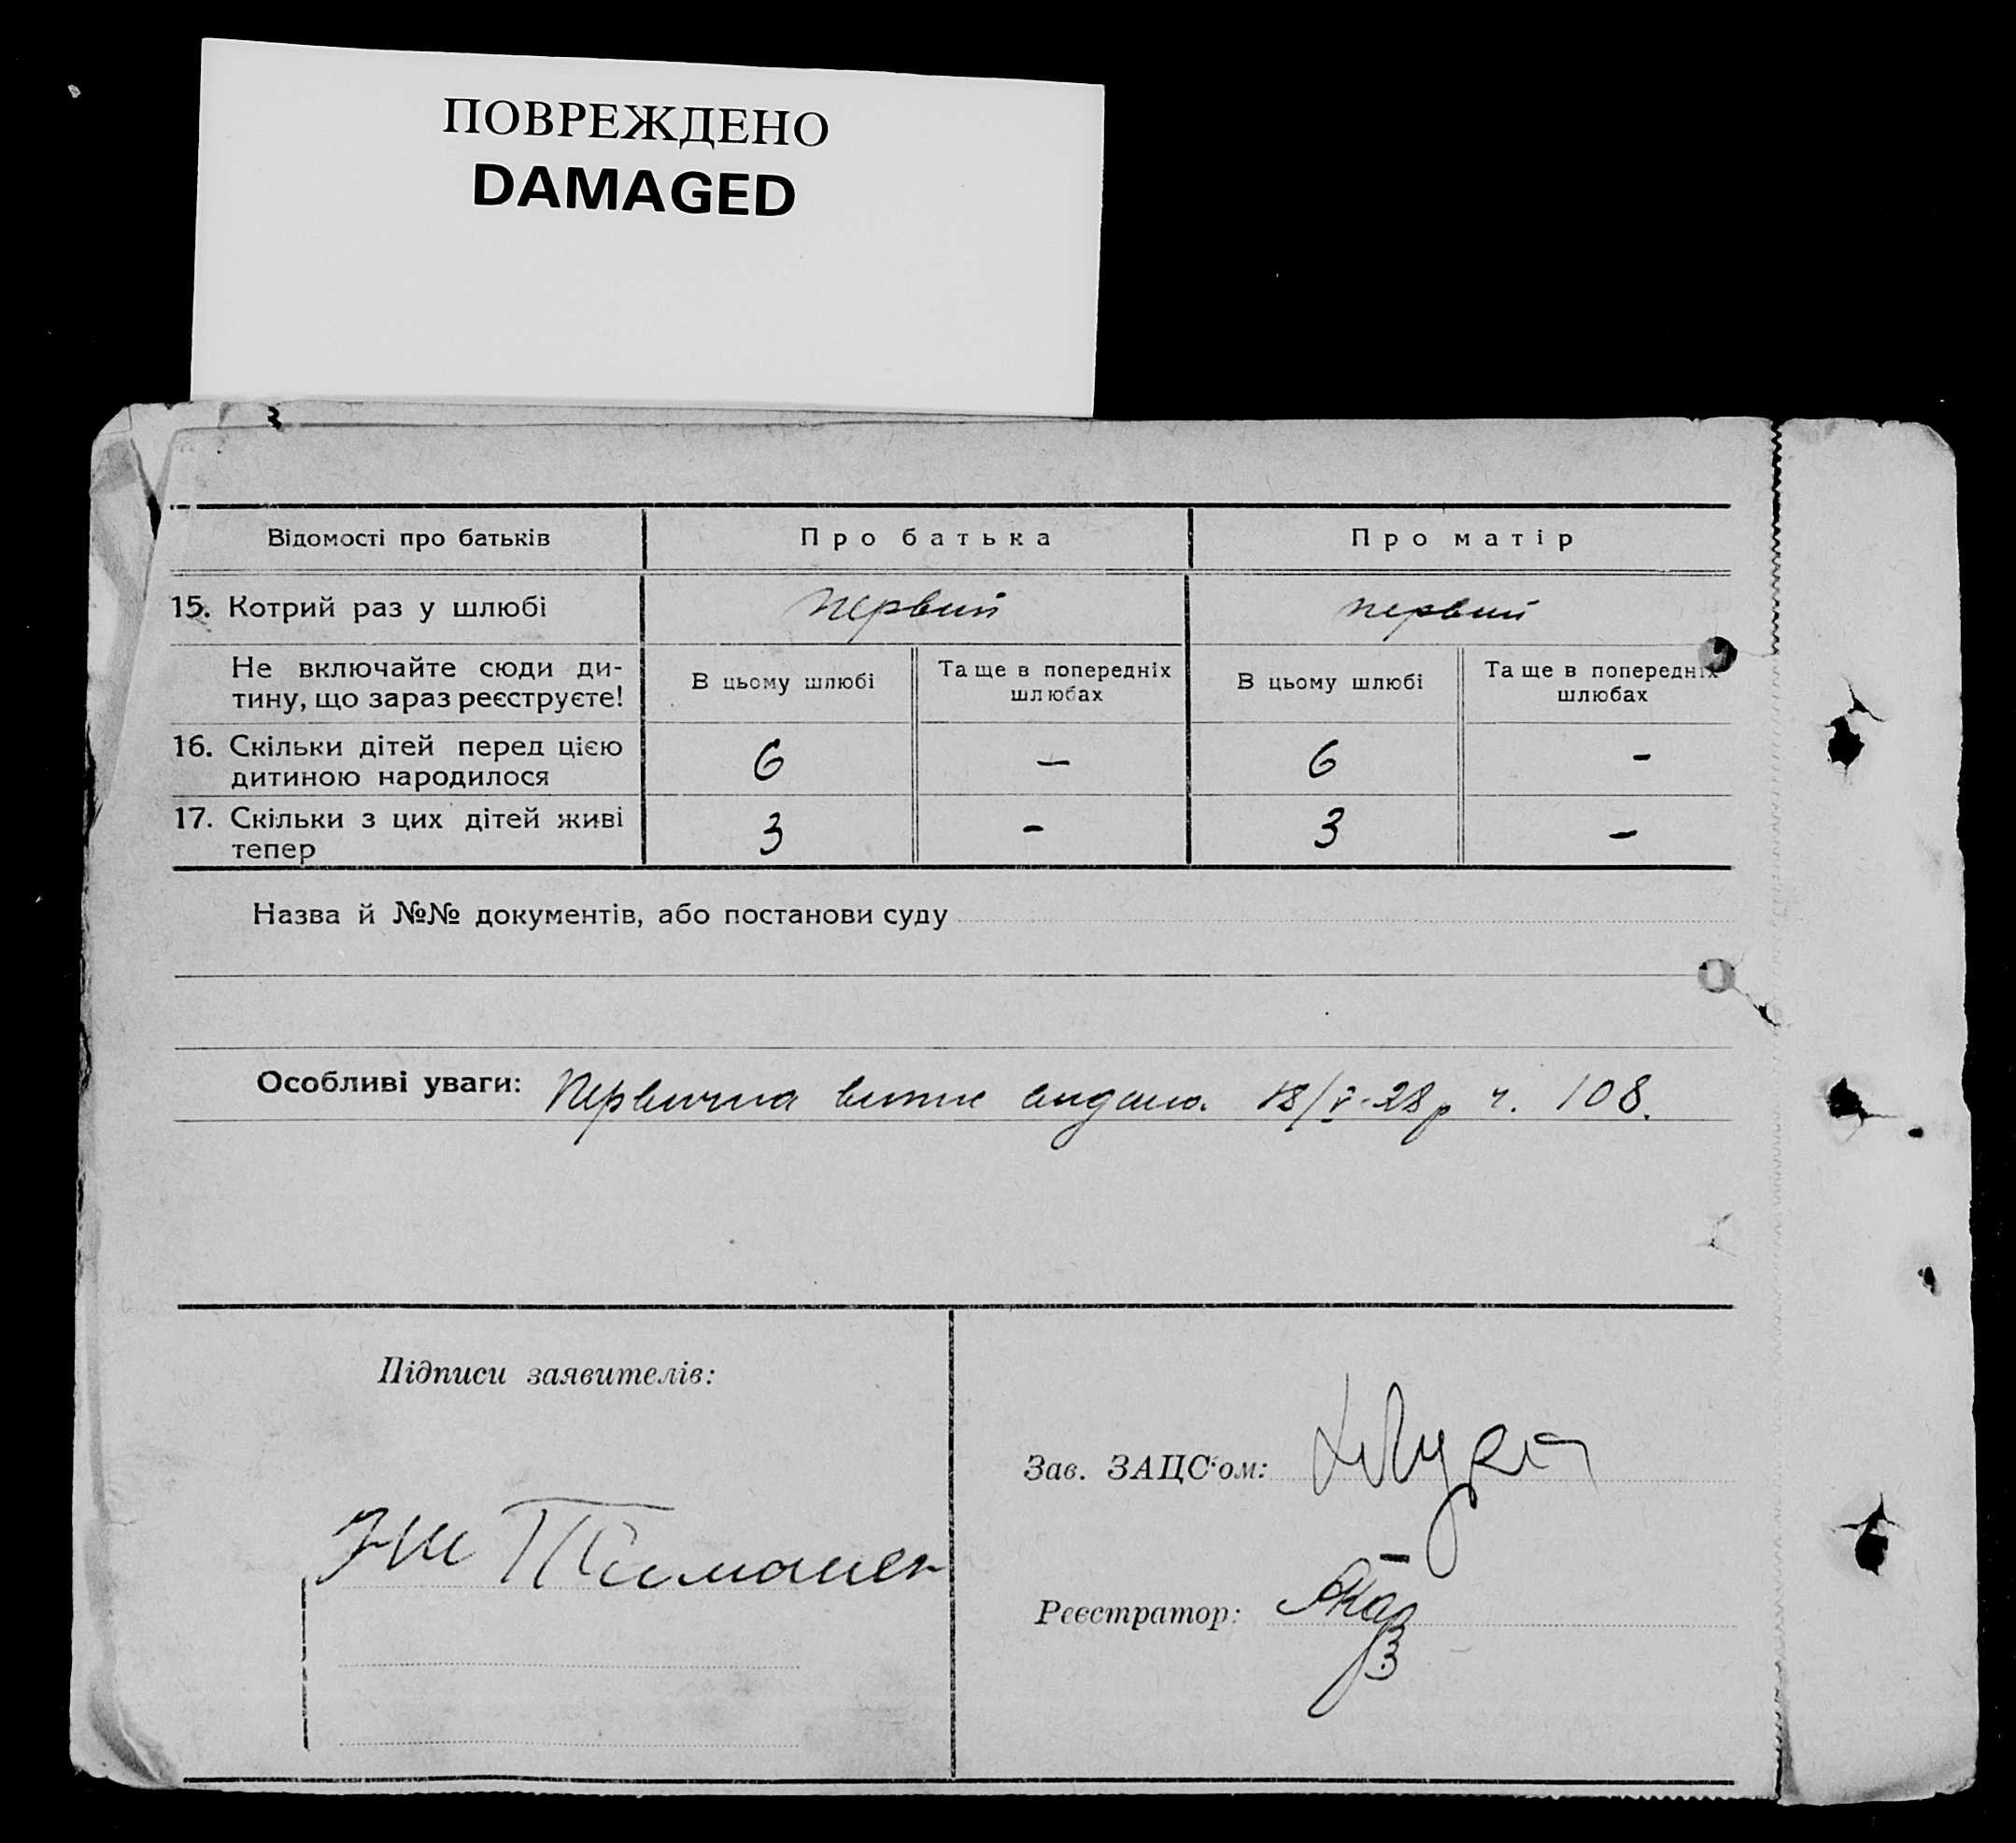 ПОВРЕЖДЕНО
DAMAGED
Відомості про батьків
Про батька
Про матір
15. Котрий раз у шлюбі
первий
первий
Не включайте сюди ди-
тину, що зараз реєструєте!
В цьому шлюбі
Та ще в попередніх
шлюбах
В цьому шлюбі
Та ще в попередніх
шлюбах
16. Скільки дітей перед цією
дитиною народилося
6
—
6
-
17. Скільки з цих дітей живі
тепер
3
-
3
-
Назва й №№ документів, або постанови суду
Особливі уваги: Первична видана 18/V-28р ч. 108.
Підписи заявителів:
Зав. ЗАЦС'ом:
Реєстратор: